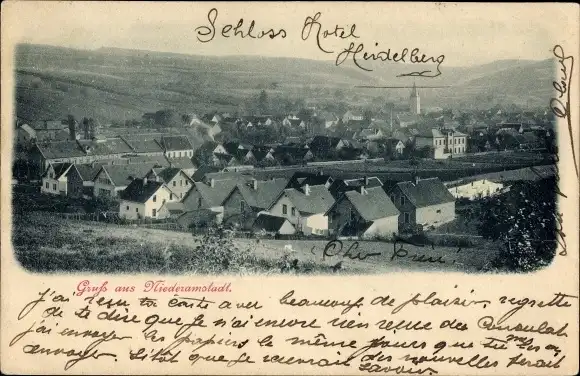 Schloss Hotel
Heidelberg
Cher
Gruß aus Niederamstadt.
J'ai reçu ta carte avec beaucoup de plaisir, regrette
de te dire que je n'ai encore rien reçu du Consulat
j'ai envoyer les papiers le même jours que tu
envoyer. Sitôt que je recevrais des nouvelles ferait
savoir